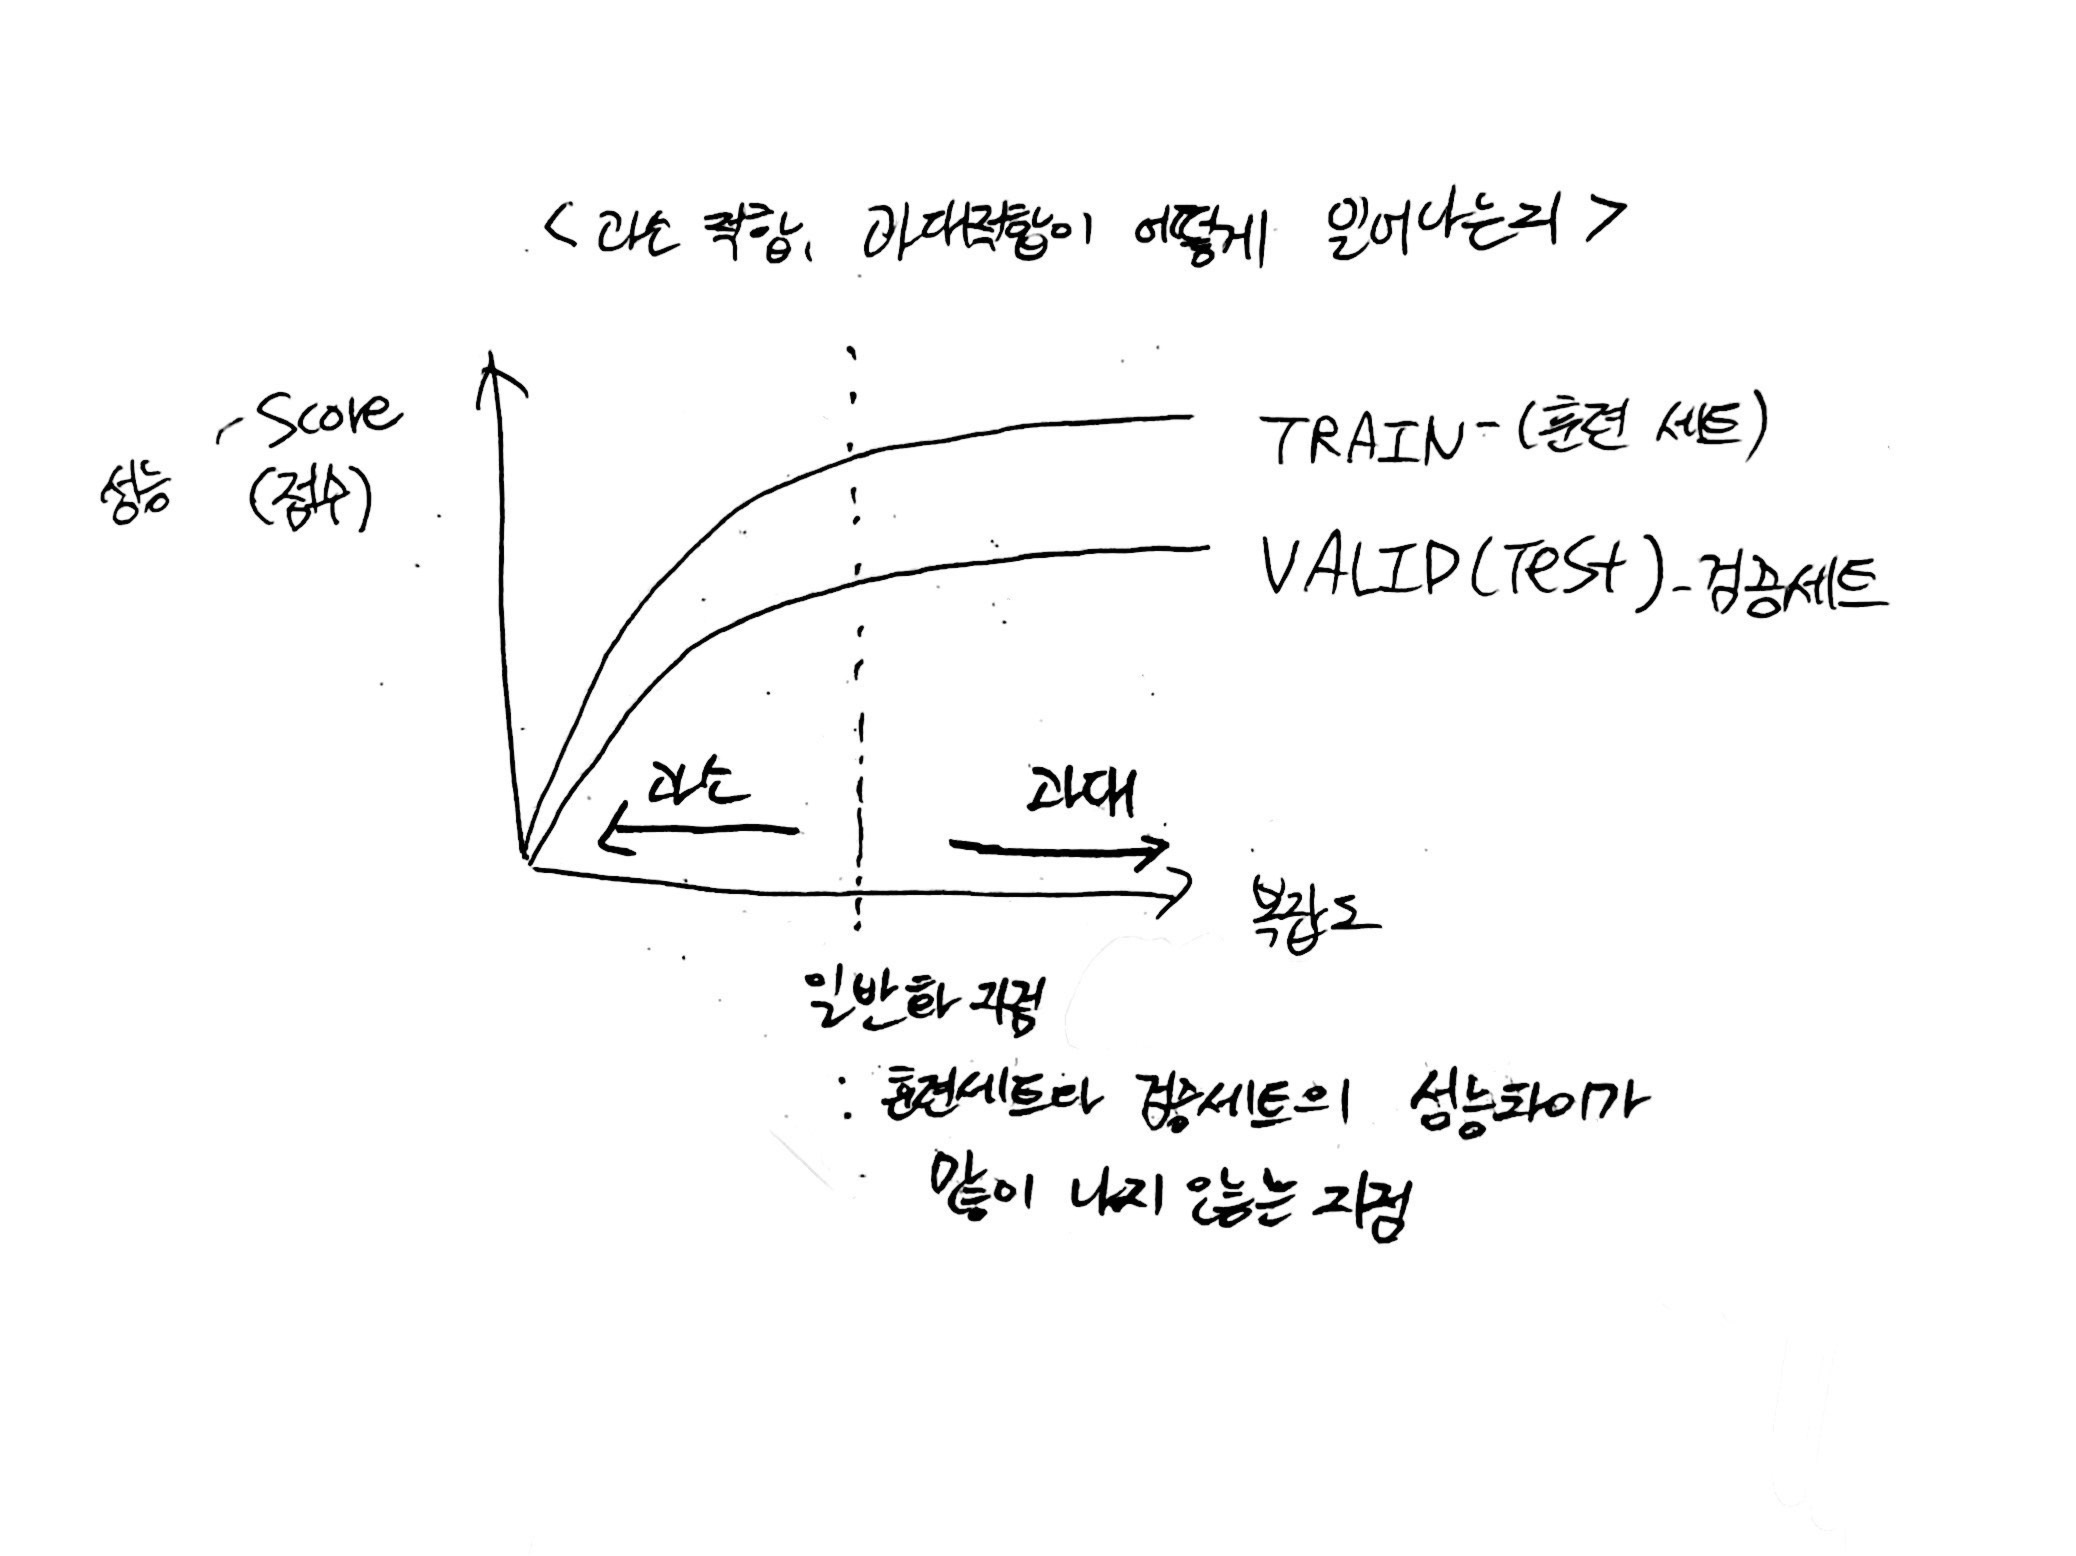 <과소 적합, 과대적합이 어떻게 일어나는지>
성능 - Score
(점수)
TRAIN - (훈련 세트)
VALID(Test) - 검증세트
과소
과대
복잡도
일반화 지점
: 훈련세트와 검증세트의 성능차이가
많이 나지 않는 지점